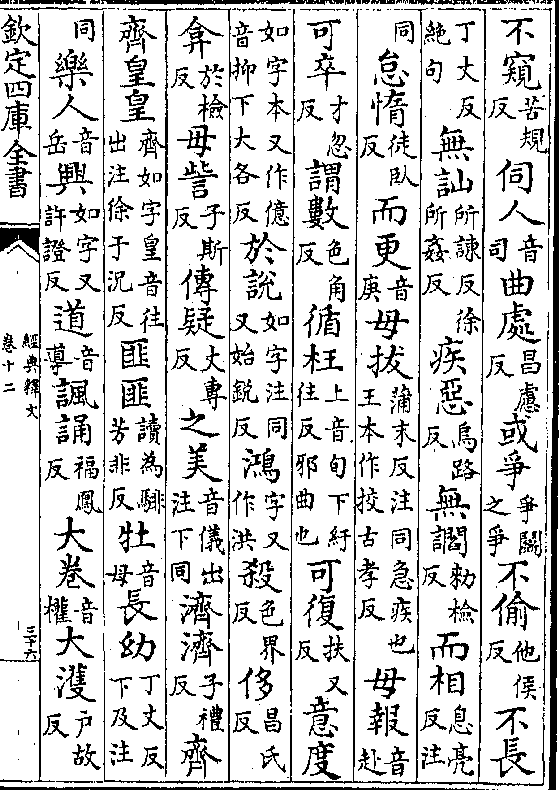 不窺苦規反伺人音司曲處昌慮反或爭爭鬬之爭不偷他侯反不長
丁丈反絶句無訕所諫反徐所姦反疾惡烏路反無讇勅檢反而相息亮反注
同怠惰徒臥反而更音庚毋拔蒲末反注同急疾也王本作挍古孝反毋報音赴
可卒才忽反謂數色角反循枉上音旬下紆往反邪曲也可復扶又反意度
如字本又作億音抑下大各反於說如字注同又始鋭反鴻字又作洪殺色界反侈昌氏反
弇於檢反毋訾子斯反傳疑丈專反之美音儀出注下同濟濟子禮反齊
齊皇皇齊如字皇音往出注徐于況反匪匪讀為騑芳非反牡音母長幼丁丈反下及注
同樂人音岳興如字又許證反道音導諷誦福鳳反大卷音權大濩户故反
欽定四庫全書
經典釋文
卷十二
三十六